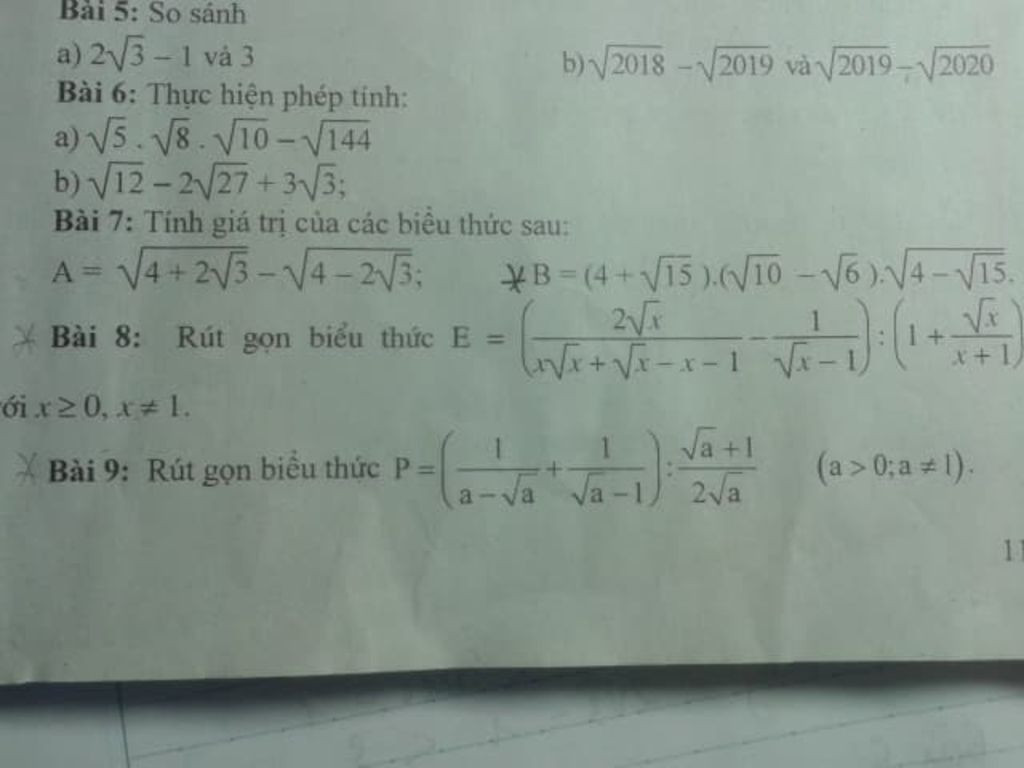 Bài 5: So sánh
a) 2√3 – 1 và 3 b) √2018 – √2019 và √2019 – √2020
Bài 6: Thực hiện phép tính:
a) √5 . √8 . √10 – √144
b) √12 – 2√27 + 3√3;
Bài 7: Tính giá trị của các biểu thức sau:
A = √(4 + 2√3) – √(4 – 2√3); B = (4 + √15).(√10 – √6).√(4 – √15).
Bài 8: Rút gọn biểu thức E = (2√x/(x√x + √x – x – 1) – 1/(√x – 1)) : (1 + √x/(x + 1))
ới x ≥ 0, x ≠ 1.
Bài 9: Rút gọn biểu thức P = (1/(a – √a) + 1/(√a – 1)) : (√a + 1)/(2√a) (a > 0; a ≠ 1).
11